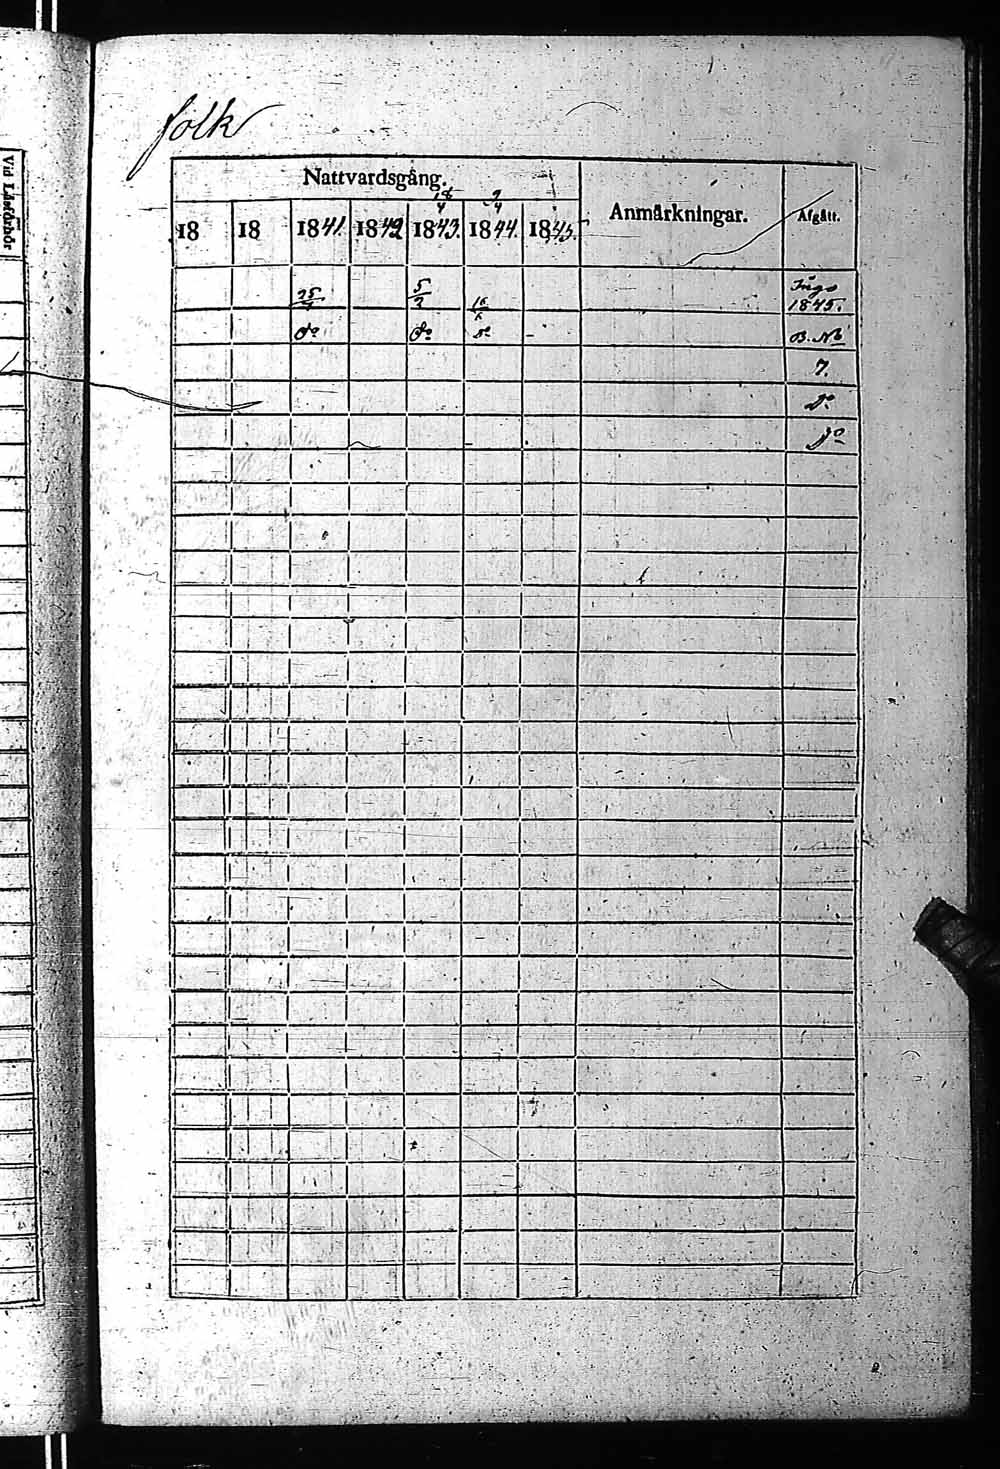 folk
Vid Läsförhör
Nattvardsgång.
Anmärkningar.
Afgått.
18 18 1841 1842 1843. 1844. 1845.
25/4 5/2
1845.
do do do B. No
7.
Do
Do